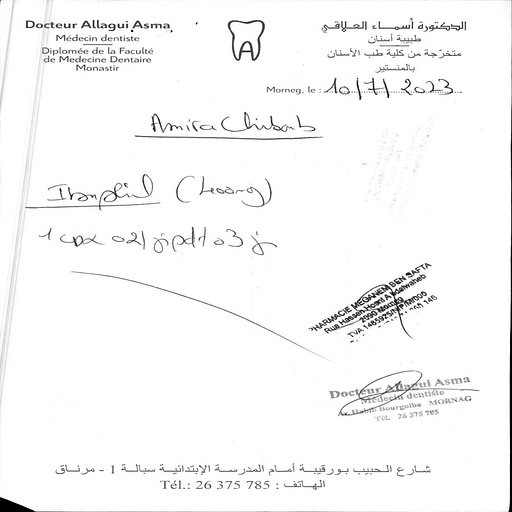 Docteur Allagui Asma
Médecin dentiste
Diplomée de la Faculté
de Medecine Dentaire
Monastir
A
الدكتورة أسماء العلاقي
طبيبة أسنان
متخرّجة من كلية طب الأسنان
بالمنستير
Morneg, le : 10/7/2023
Amira Chibab
(400mg)
1 cp x 02/j pdt 03 j
PHARMACIE MEGANEM BEN SAFTA
Rue Hassen Hosni Abdelwaheb
2090 Mornag
TVA
Docteur Allagui Asma
Médecin dentiste
Av. Habib Bourguiba MORNAG
Tél. 26 375 785
شارع الحبيب بورقيبة أمام المدرسة الإبتدائية سبالة 1 - مرناق
الهاتف : Tél.: 26 375 785